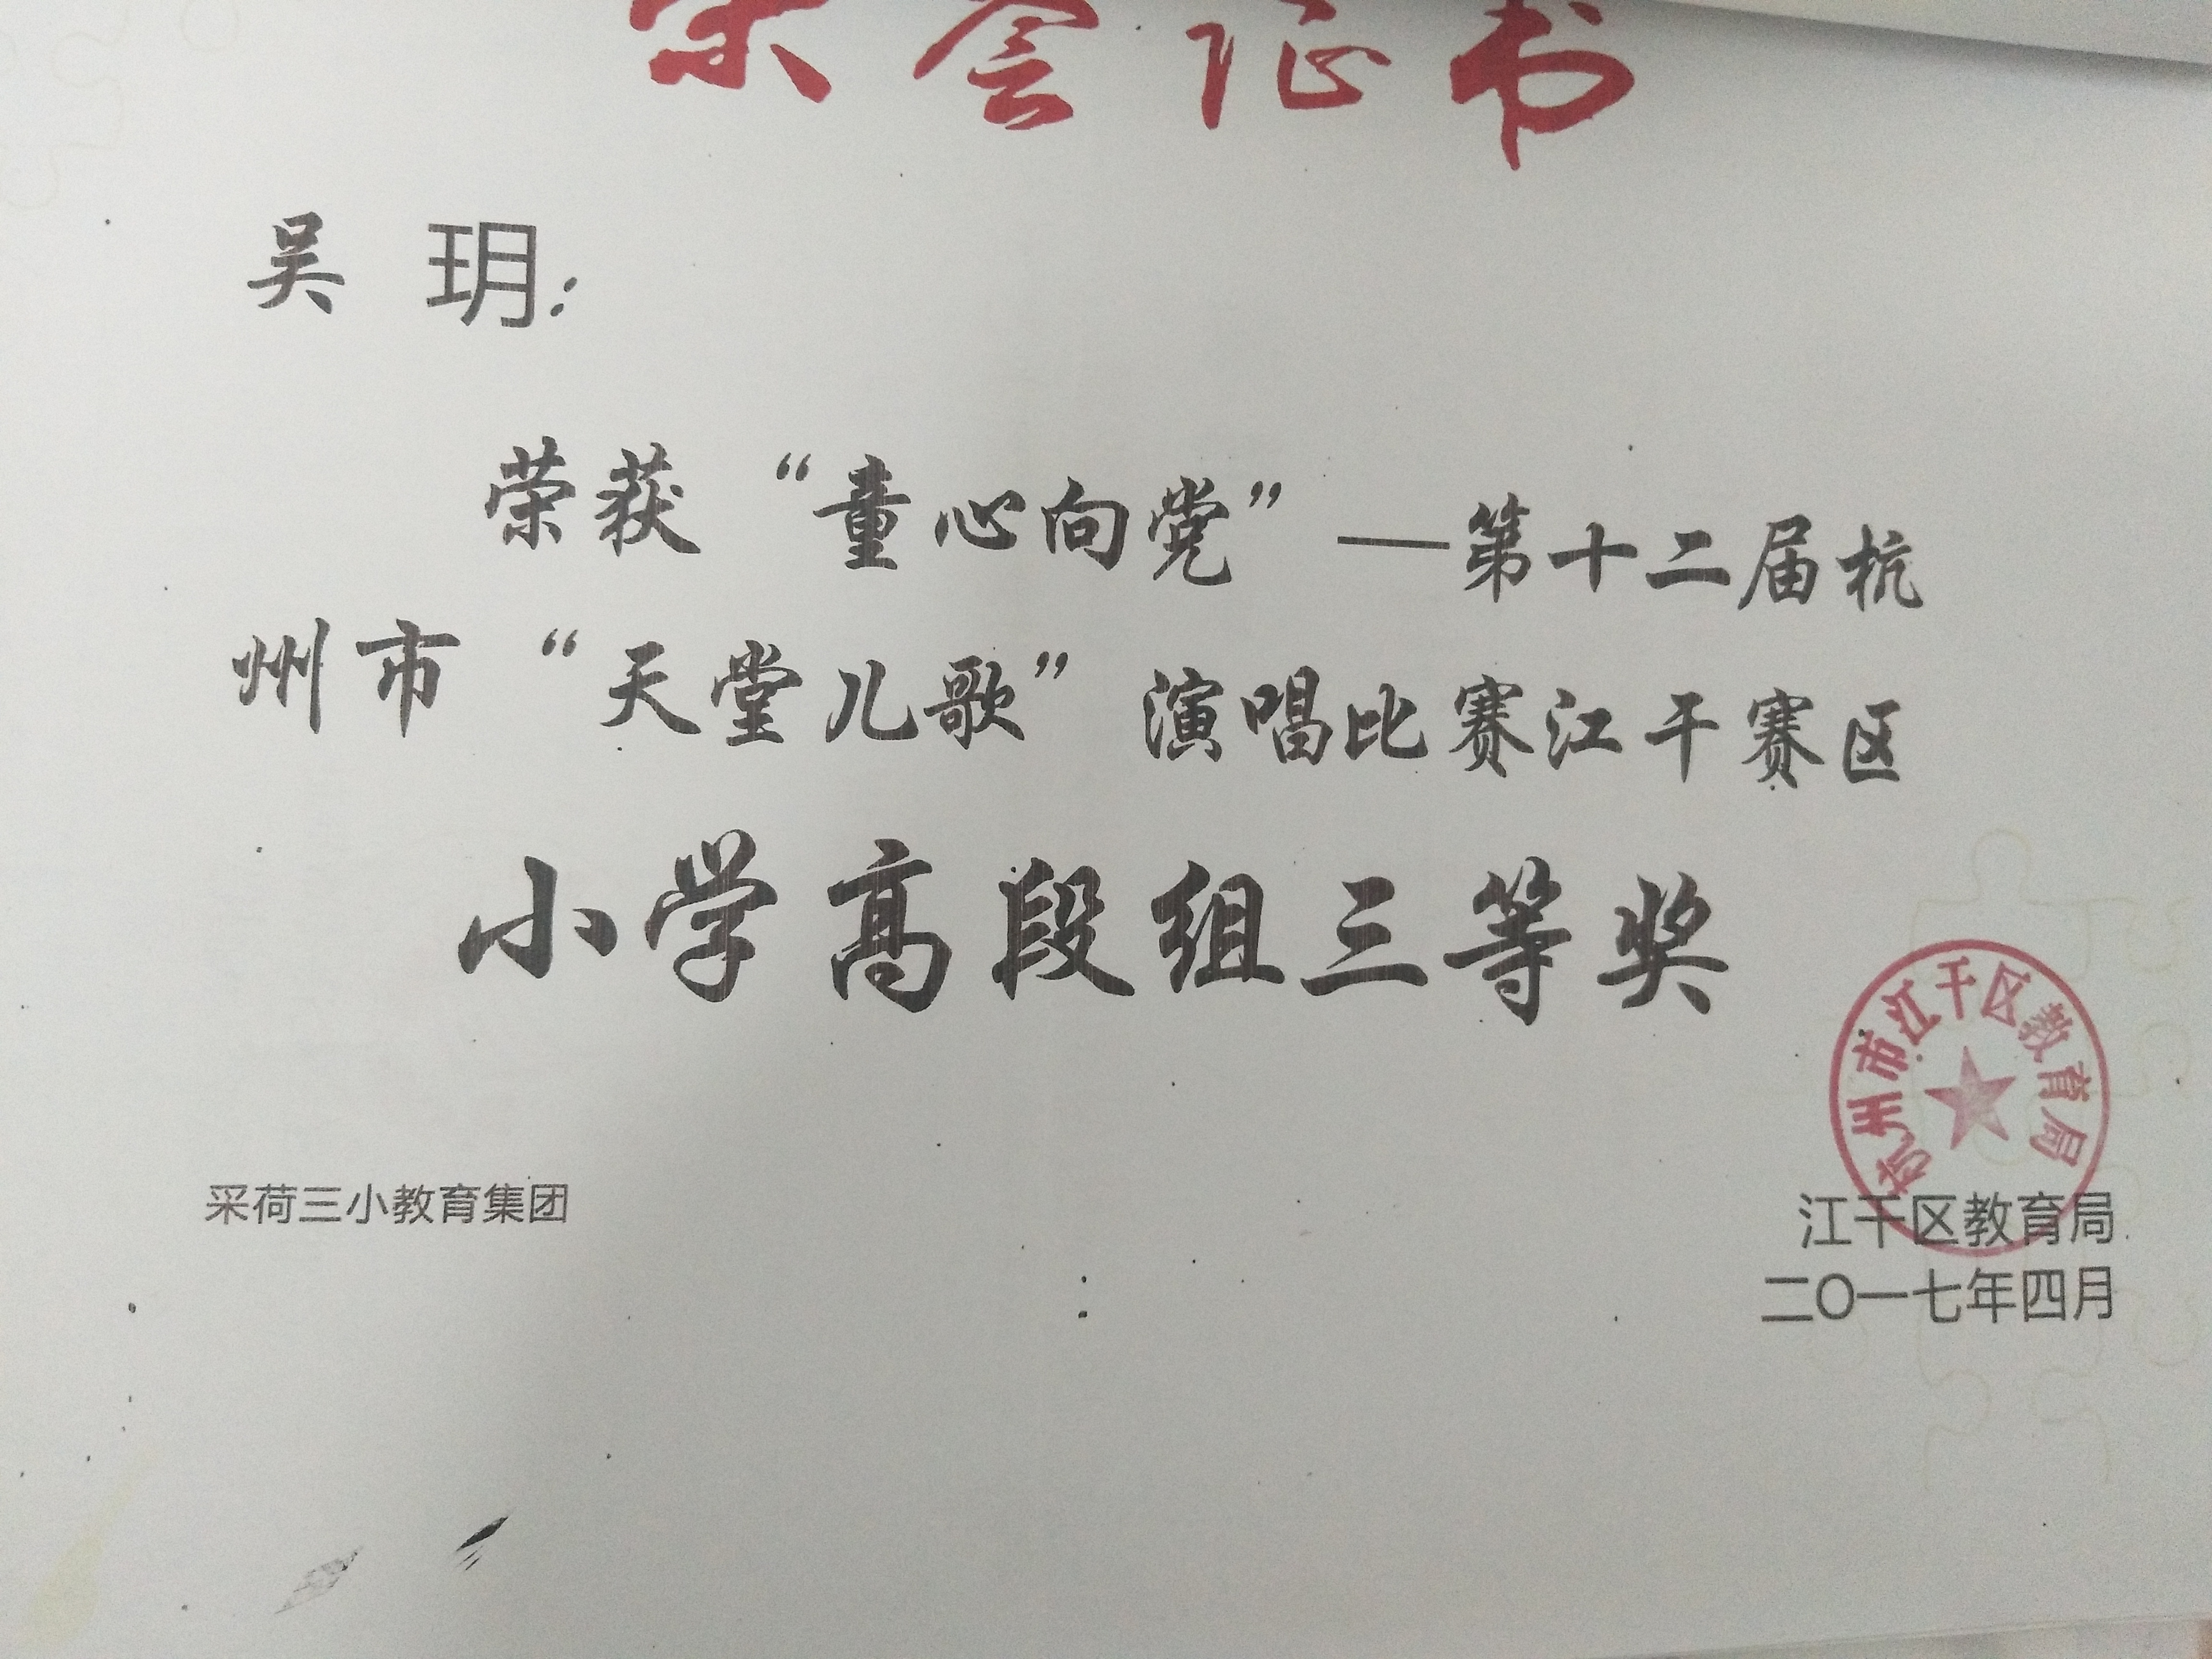 荣誉证书
吴 玥:
荣获“童心向党”—第十二届杭
州市“天堂儿歌”演唱比赛江干赛区
小学高段组三等奖
杭州市江干区教育局
采荷三小教育集团
江干区教育局
二〇一七年四月